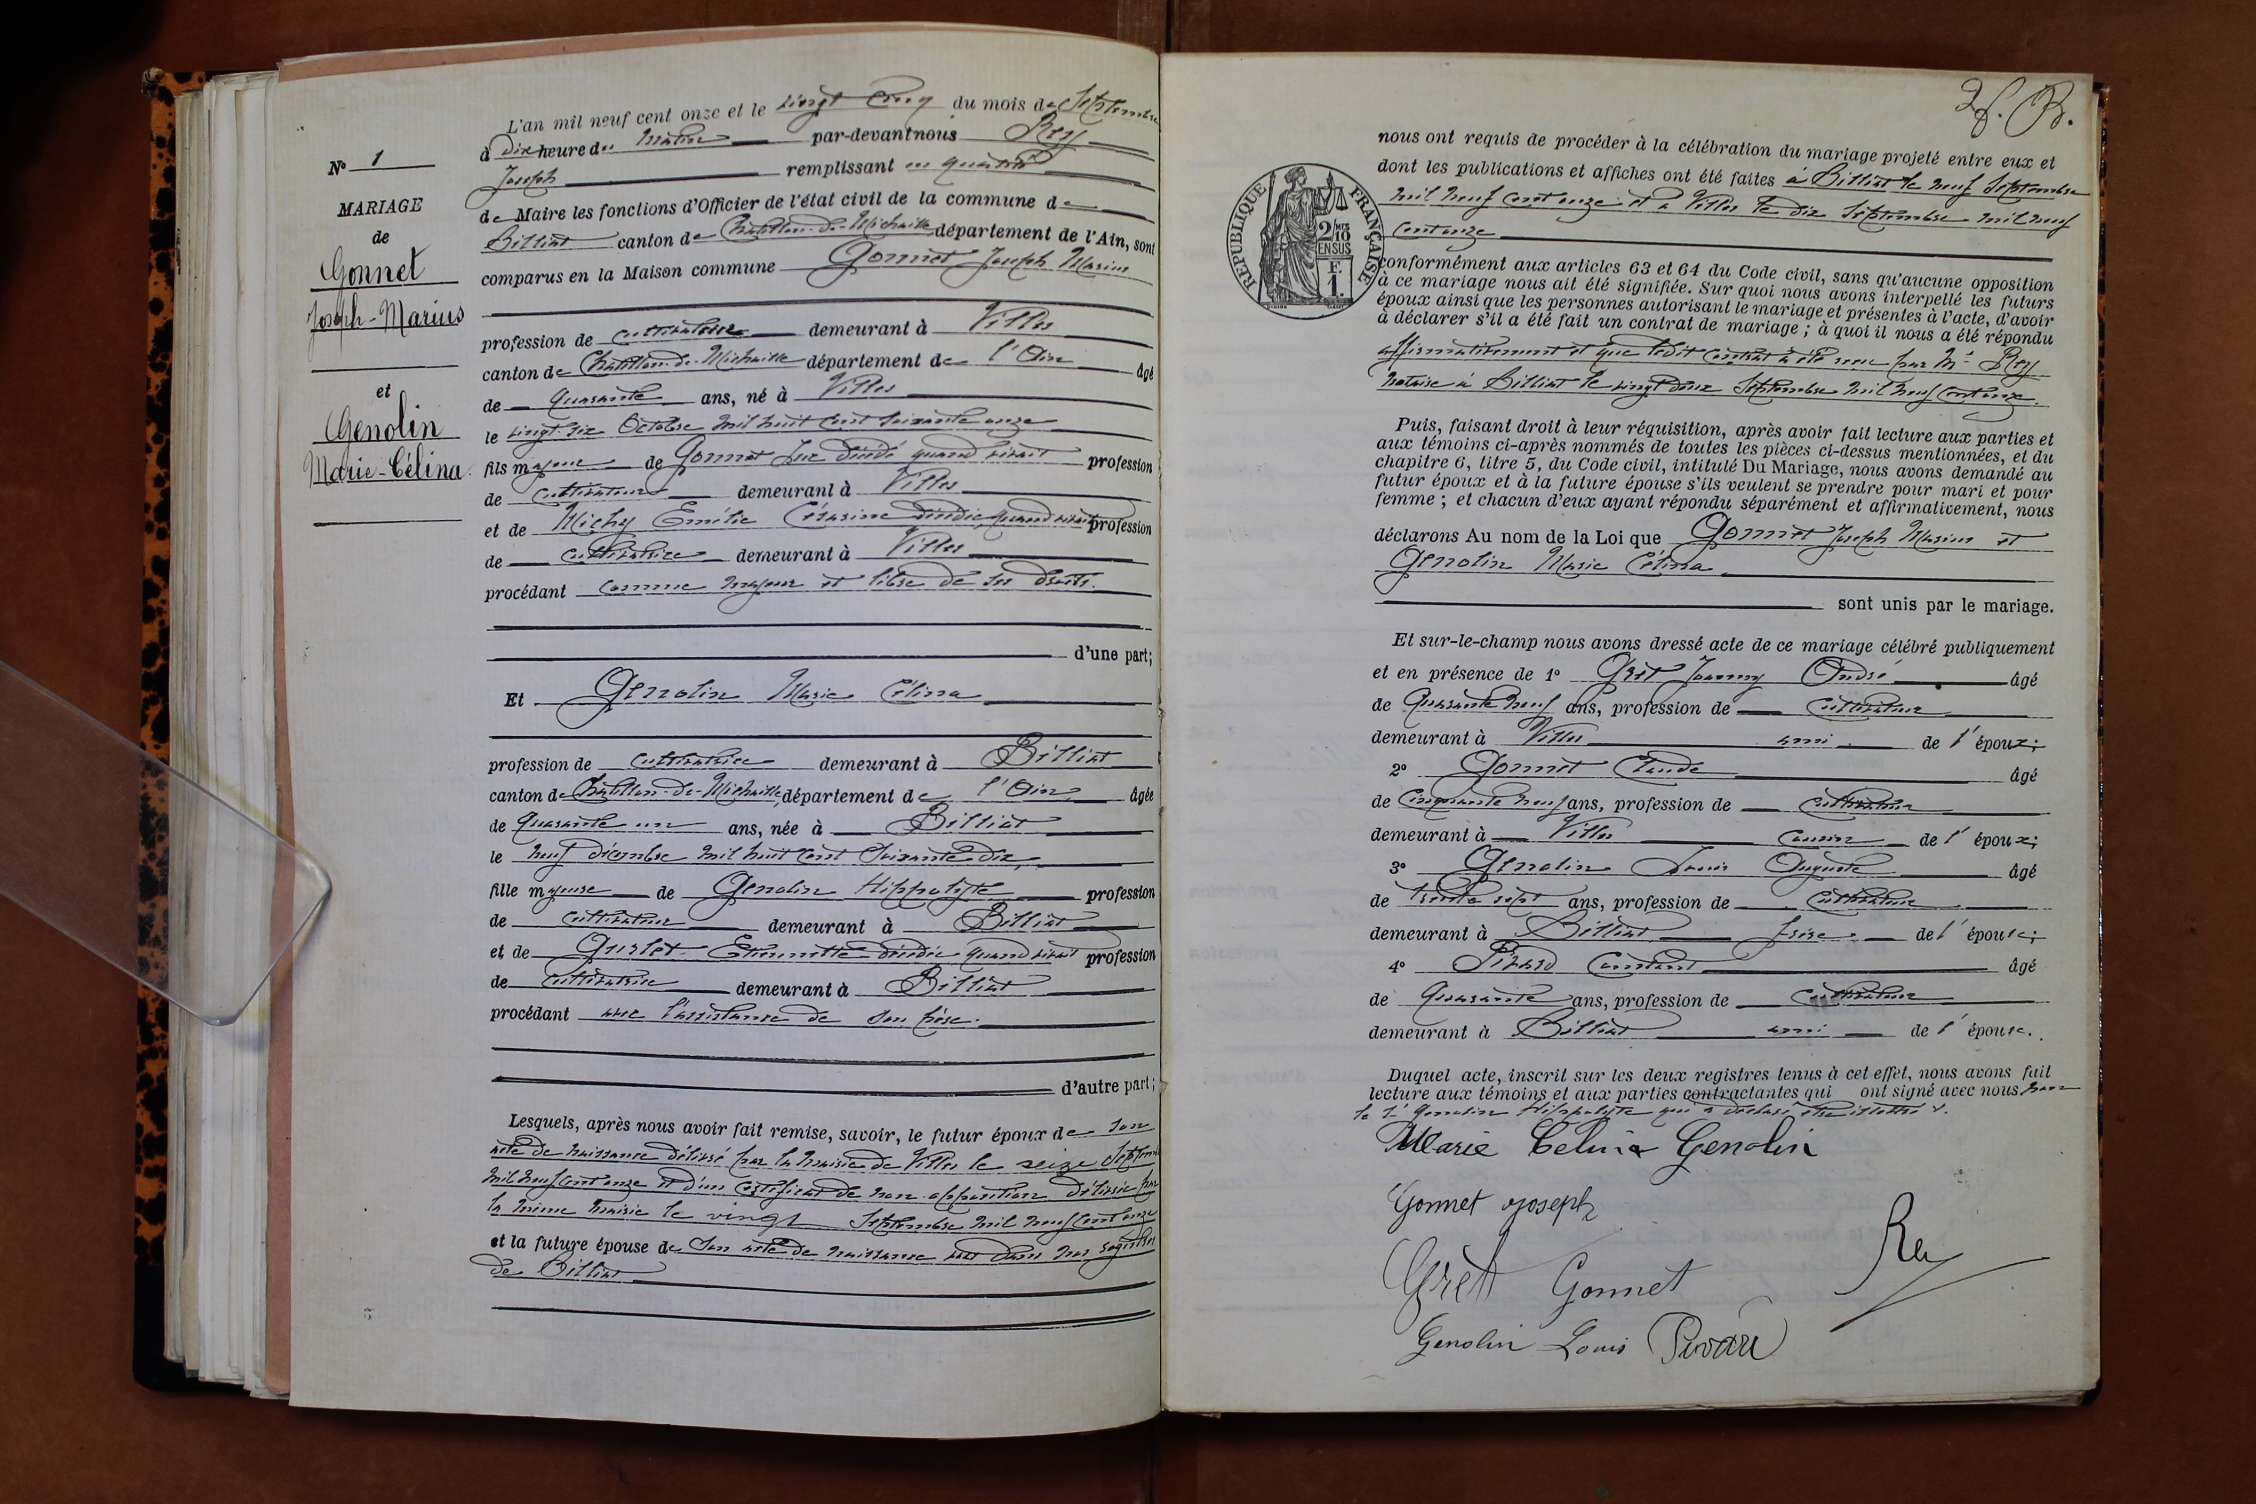 L'an mil neuf cent onze et le vingt cinq du mois de Septembre
à dix heure du matin par-devant nous Rey
Joseph remplissant en qualité
de Maire les fonctions d'Officier de l'état civil de la commune de
Billiat canton de Châtillon-de-Michaille département de l'Ain, sont
comparus en la Maison commune Gonnet Joseph Marius
profession de cultivateur demeurant à Villes
canton de Châtillon-de-Michaille département de l'Ain âgé
de quarante ans, né à Villes
le vingt six Octobre mil huit cent soixante onze
fils majeur de Gonnet décédé quand vivait profession
de cultivateur demeurant à Villes
et de Michy Emélie Césarine décédée quand vivait profession
de cultivatrice demeurant à Villes
procédant comme majeur et libre de ses droits.
d'une part;
Et Genolin Marie Célina
profession de cultivatrice demeurant à Billiat
canton de Châtillon-de-Michaille département de l'Ain âgée
de quarante un ans, née à Billiat
le neuf décembre mil huit cent soixante dix
fille majeure de Genolin Hippolyte profession
de cultivateur demeurant à Billiat
et de Etiennette décédée quand vivait profession
de cultivatrice demeurant à Billiat
procédant avec l'assistance de son père.
d'autre part;
Lesquels, après nous avoir fait remise, savoir, le futur époux de son
acte de naissance délivré par la mairie de Villes le seize Septembre
mil neuf cent onze et d'un certificat de non opposition délivré par
la même mairie le vingt Septembre mil neuf cent onze
et la future épouse de son acte de naissance dans nos registres
de Billiat
N° 1
MARIAGE
de
Gonnet
Joseph-Marius
et
Genolin
Marie-Célina
RÉPUBLIQUE FRANÇAISE
2/10
EN SUS
F.
1.
nous ont requis de procéder à la célébration du mariage projeté entre eux et
dont les publications et affiches ont été faites à Billiat le neuf Septembre
mil neuf cent onze et à Villes le dix Septembre mil neuf
cent onze
conformément aux articles 63 et 64 du Code civil, sans qu'aucune opposition
à ce mariage nous ait été signifiée. Sur quoi nous avons interpellé les futurs
époux ainsi que les personnes autorisant le mariage et présentes à l'acte, d'avoir
à déclarer s'il a été fait un contrat de mariage ; à quoi il nous a été répondu
affirmativement et que ledit contrat a été reçu par Me Rey
notaire à Billiat le vingt deux Septembre mil neuf cent onze.
Puis, faisant droit à leur réquisition, après avoir fait lecture aux parties et
aux témoins ci-après nommés de toutes les pièces ci-dessus mentionnées, et du
chapitre 6, titre 5, du Code civil, intitulé Du Mariage, nous avons demandé au
futur époux et à la future épouse s'ils veulent se prendre pour mari et pour
femme ; et chacun d'eux ayant répondu séparément et affirmativement, nous
déclarons Au nom de la Loi que Gonnet Joseph Marius et
Genolin Marie Célina
sont unis par le mariage.
Et sur-le-champ nous avons dressé acte de ce mariage célébré publiquement
et en présence de 1° Grèt Joanny André âgé
de quarante neuf ans, profession de cultivateur
demeurant à Villes ami de l'époux;
2° Gonnet Claude âgé
de cinquante neuf ans, profession de cultivateur
demeurant à Villes cousin de l'époux;
3° Genolin Louis Auguste âgé
de trente sept ans, profession de cultivateur
demeurant à Billiat frère de l'épouse;
4° Pivard Constant âgé
de quarante ans, profession de cultivateur
demeurant à Billiat ami de l'épouse.
Duquel acte, inscrit sur les deux registres tenus à cet effet, nous avons fait
lecture aux témoins et aux parties contractantes qui ont signé avec nous hors
le Sr Genolin Hippolyte qui a déclaré être illettré.
Marie Celina Genolin
Gonnet Joseph
Grèt Gonnet Rey
Genolin Louis Pivard